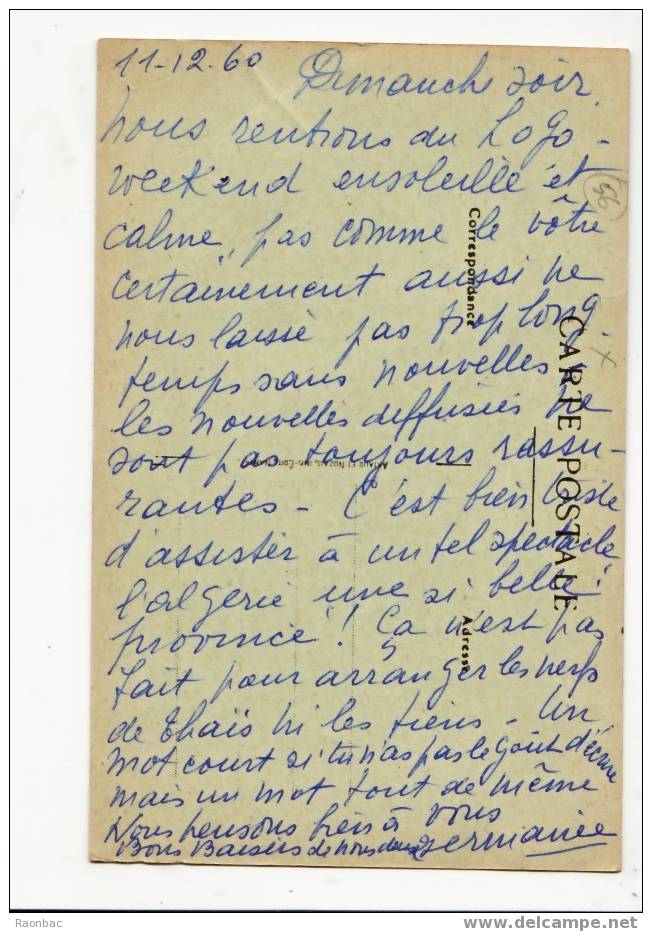 11-12.60
Dimanche soir.
nous rentrons du Logo -
weekend ensoleillé et
calme, pas comme le vôtre
certainement aussi ne
nous laisse pas trop long
temps sans nouvelles
les nouvelles diffusées ne
sont pas toujours rassu-
rantes - C'est bien triste
d'assister à un tel spectacle
l'algérie une si belle
province! Ça n'est pas
fait pour arranger les nerfs
de Thaïs ni les tiens - Un
mot court si tu n'as pas le goût d'écrire
mais un mot tout de même
Nous pensons bien à vous
Bons Baisers de nous deux germaine
56
Correspondance
CARTE POSTALE
Adresse
ARTAUD ET NOZAIS, IMP.-EDIT., NANTES
Raonbac
www.delcampe.net